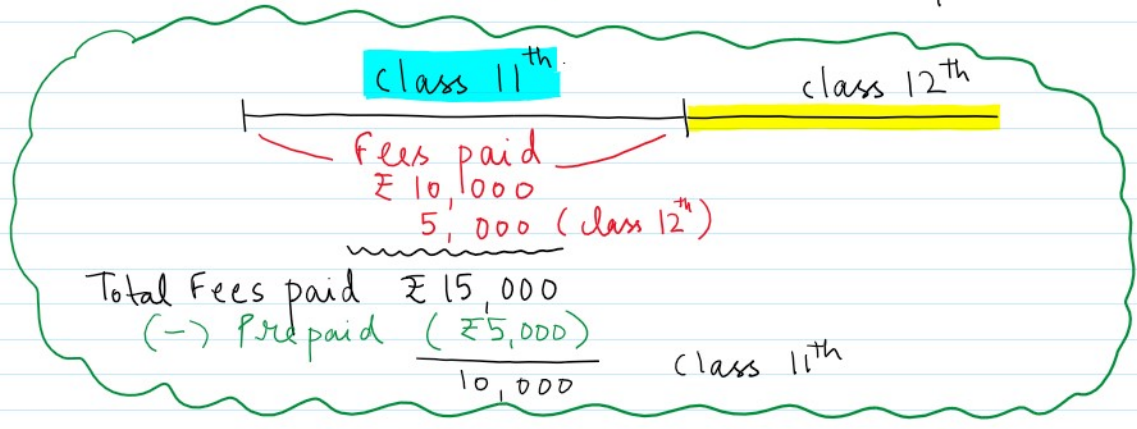 class 11th
class 12th
Fees paid
₹ 10,000
5,000 (class 12th)
Total Fees paid ₹ 15,000
(-) Prepaid (₹5,000)
10,000 class 11th